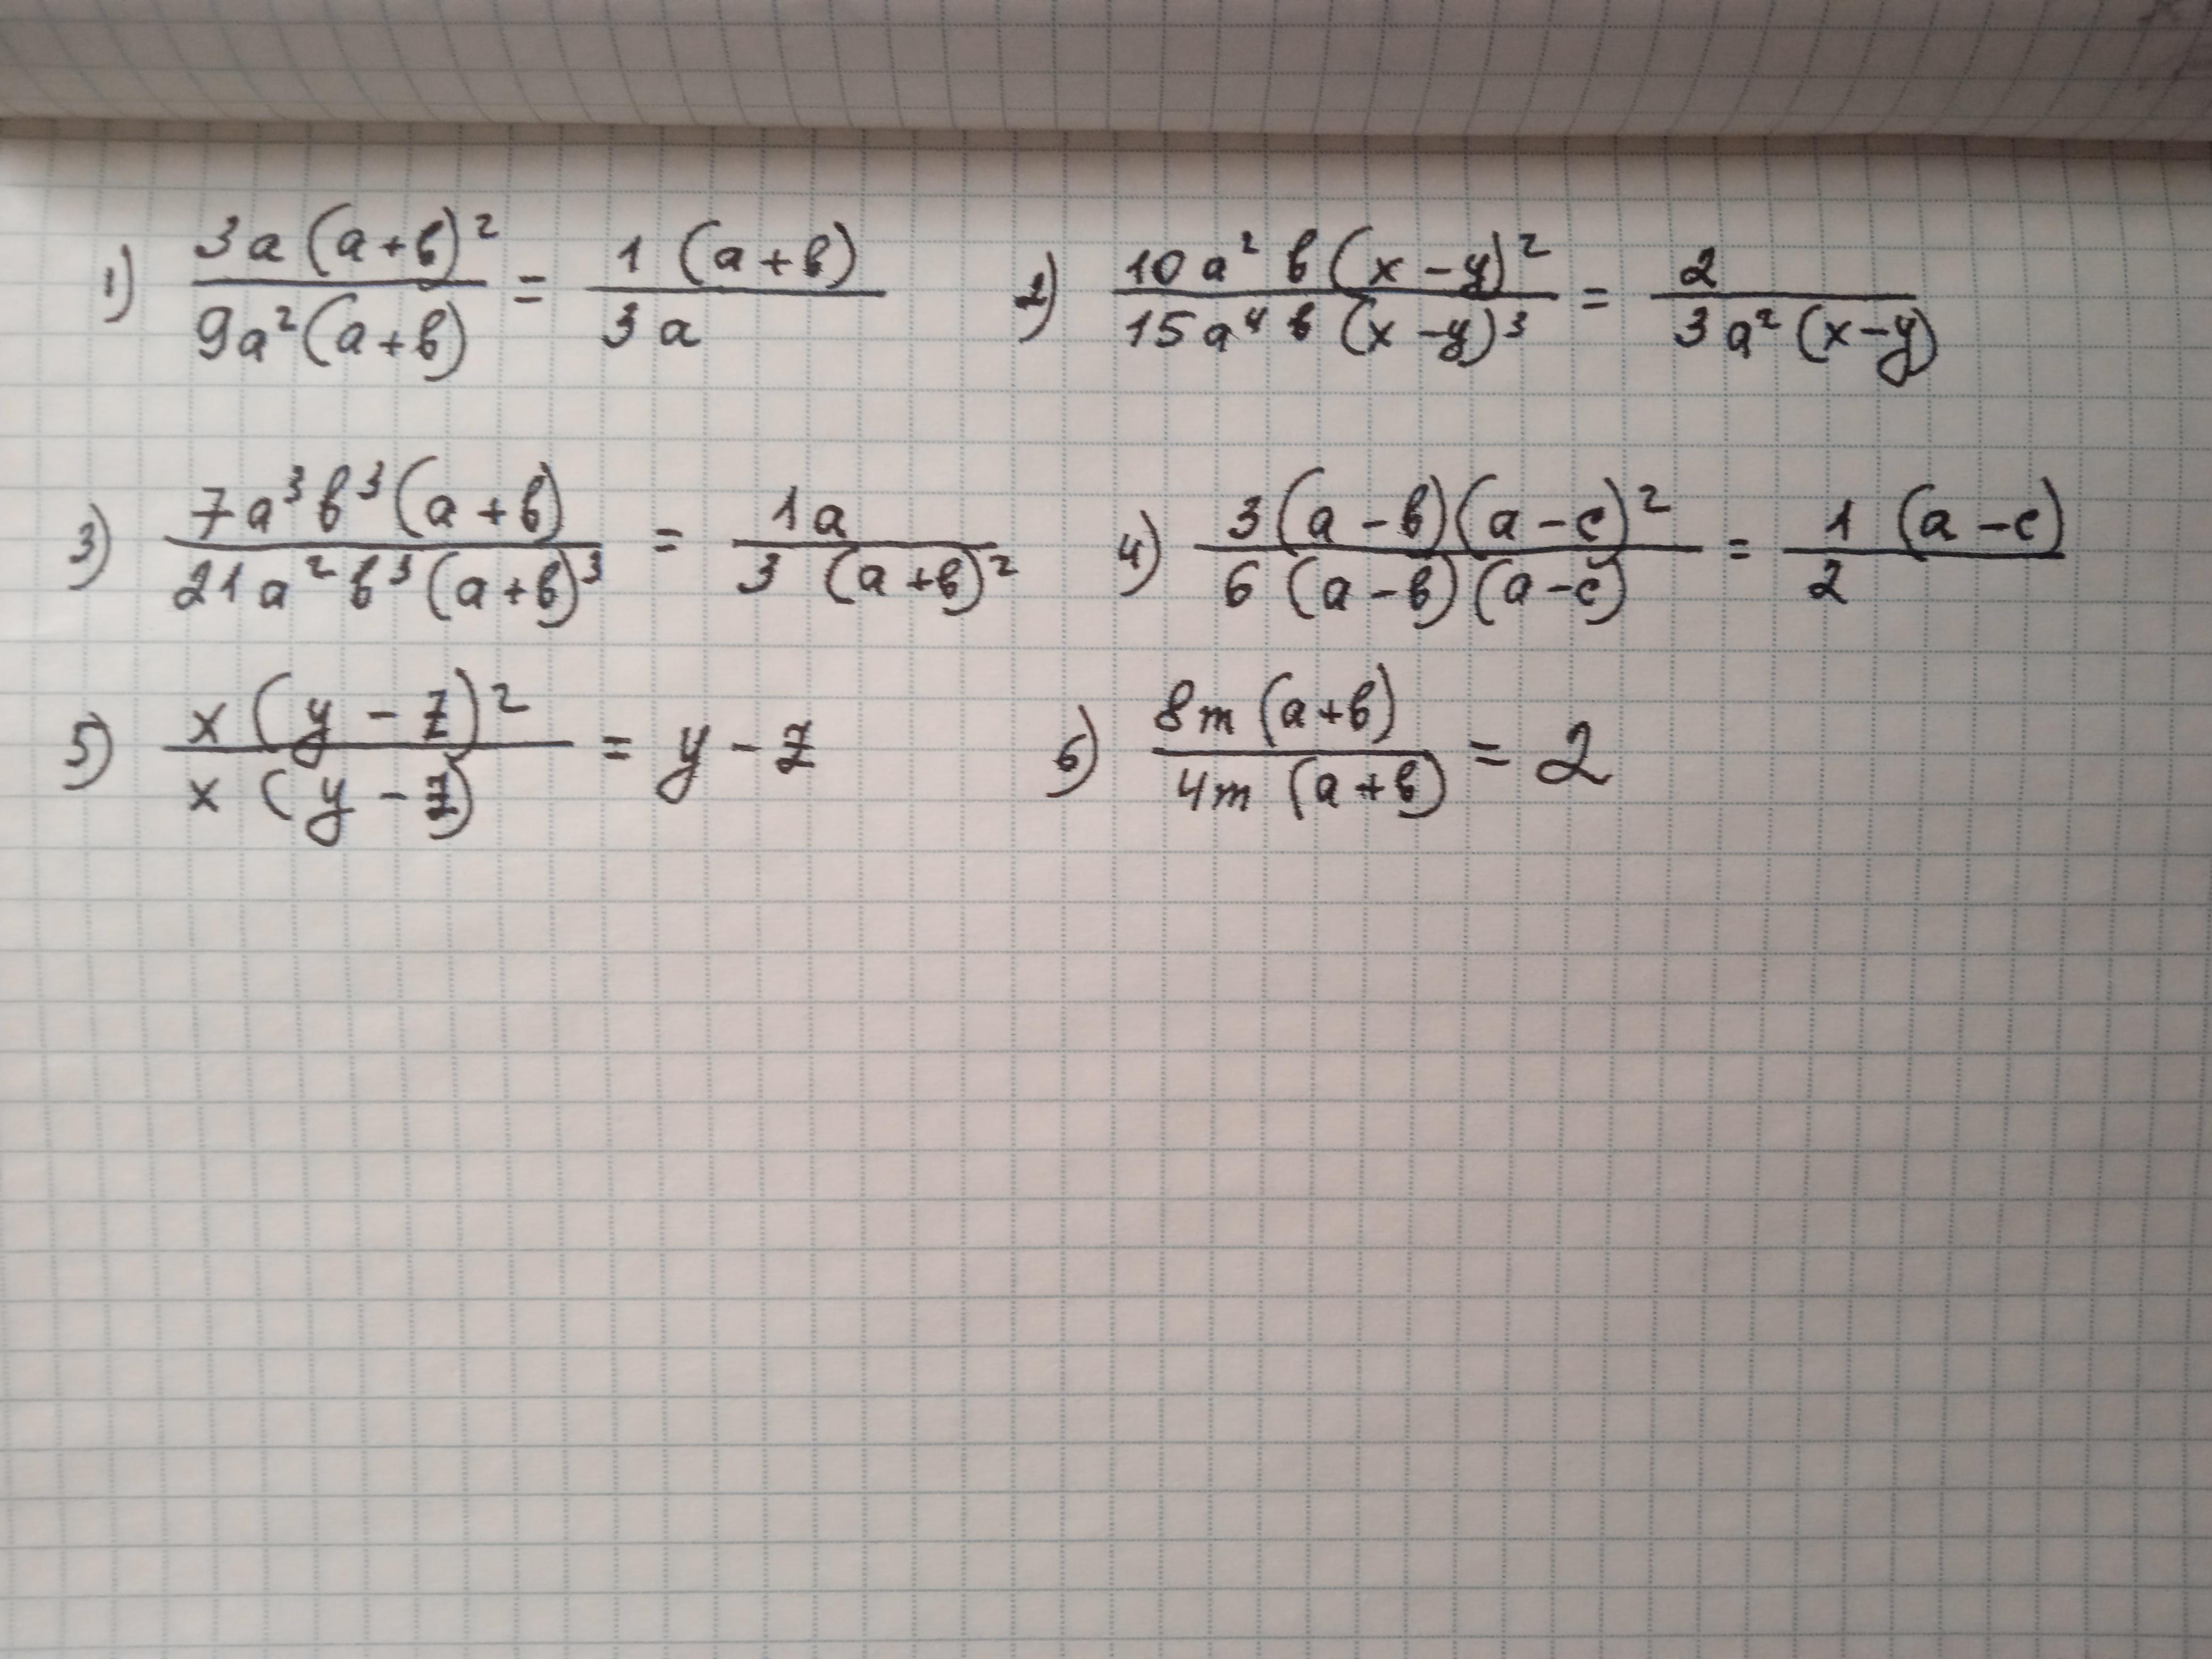 1) \frac{3a(a+b)^2}{9a^2(a+b)} = \frac{1(a+b)}{3a} 2) \frac{10a^2b(x-y)^2}{15a^4b(x-y)^3} = \frac{2}{3a^2(x-y)}
3) \frac{7a^3b^3(a+b)}{21a^2b^3(a+b)^3} = \frac{1a}{3(a+b)^2} 4) \frac{3(a-b)(a-c)^2}{6(a-b)(a-c)} = \frac{1(a-c)}{2}
5) \frac{x(y-z)^2}{x(y-z)} = y-z 6) \frac{8m(a+b)}{4m(a+b)} = 2